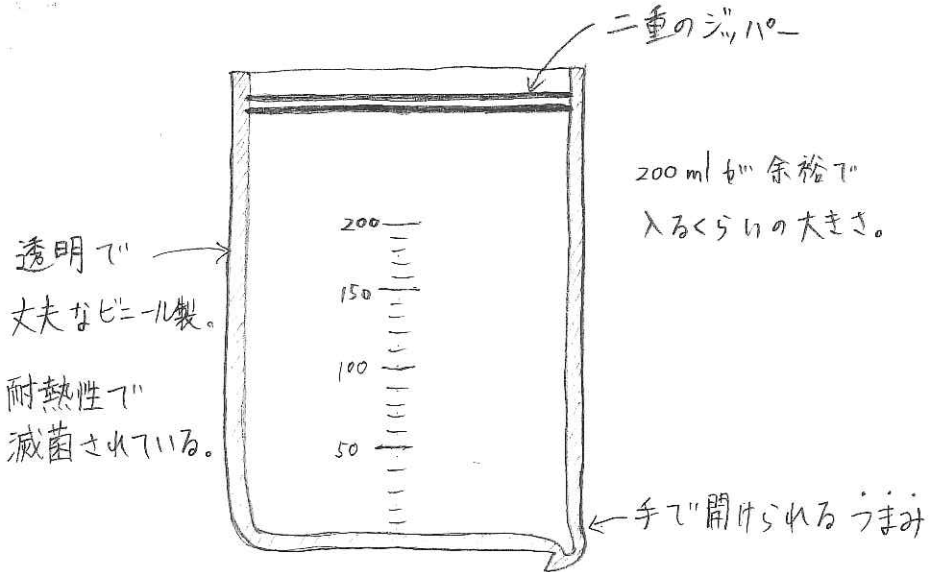 二重のジッパー
200mlが余裕で
入るくらいの大きさ。
透明で
丈夫なビニール製。
耐熱性で
滅菌されている。
200
150
100
50
手で開けられるつまみ